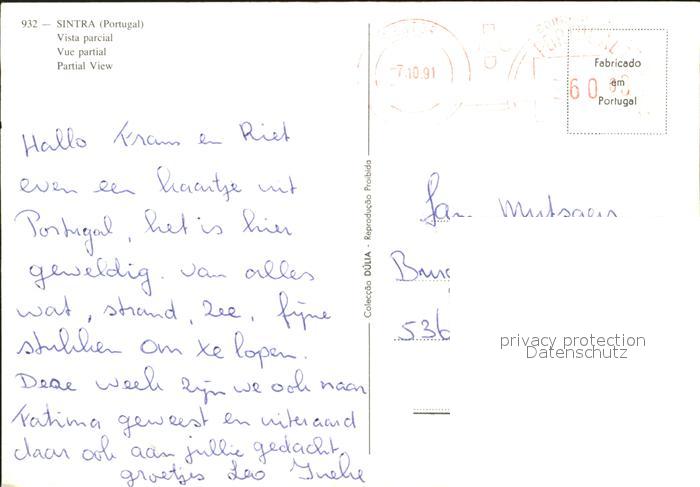 932 — SINTRA (Portugal)
Vista parcial
Vue partial
Partial View
-7.10.91
60.00
Fabricado
em
Portugal
Hallo Frans en Riet
even een kaartje uit
Portugal, het is hier
geweldig. van alles
wat, strand, zee, fijne
stukken om te lopen.
Deze week zijn we ook naar
Fatima geweest en uiteraard
daar ook aan jullie gedacht.
groetjes Leo Ineke
Colecção DÚLIA - Reprodução Proibida
Fam. Mutsaars
536
privacy protection
Datenschutz